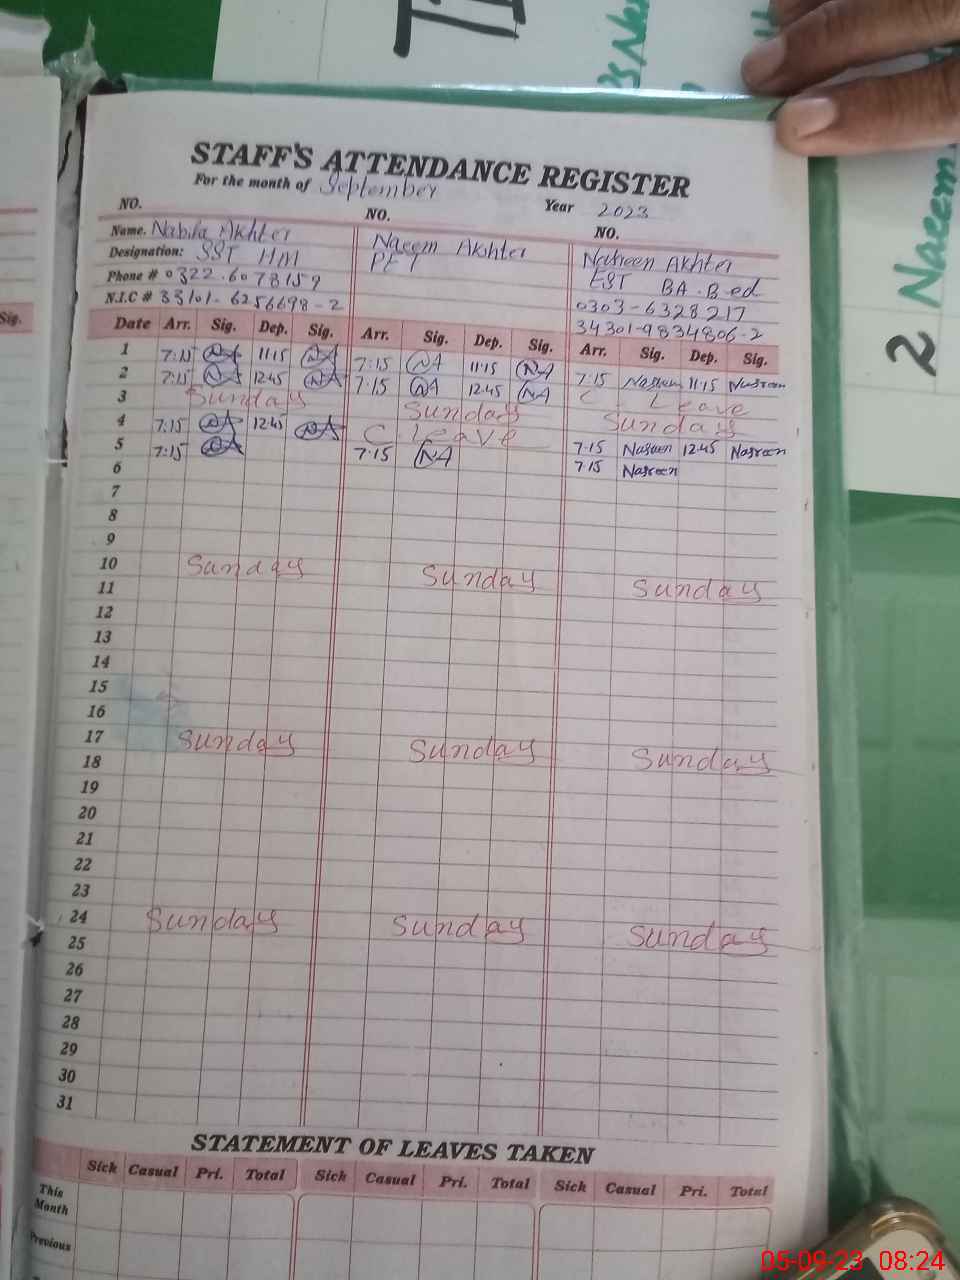 STAFF'S ATTENDANCE REGISTER
For the month of September Year 2023
NO. NO. NO.
Name. Nabila Akhter Naeem Akhter Nasreen Akhter
Designation: SST HM PET EST BA. B-ed
Phone # 0322.6078159 0303-6328217
N.I.C # 33101-6256698-2 34301-9834806-2
Date Arr. Sig. Dep. Sig. Arr. Sig. Dep. Sig. Arr. Sig. Dep. Sig.
1 7:15 NA 11:15 NA 7:15 NA 11:15 NA 7:15 Nasreen 11:15 Nasreen
2 7:15 NA 12:45 NA 7:15 NA 12:45 NA C. Leave
3 Sunday Sunday Sunday
4 7:15 NA 12:45 NA C. Leave 7:15 Nasreen 12:45 Nasreen
5 7:15 NA 7:15 NA 7:15 Nasreen
6
7
8
9
10 Sunday Sunday Sunday
11
12
13
14
15
16
17 Sunday Sunday Sunday
18
19
20
21
22
23
24 Sunday Sunday Sunday
25
26
27
28
29
30
31
STATEMENT OF LEAVES TAKEN
Sick Casual Pri. Total Sick Casual Pri. Total Sick Casual Pri. Total
This Month
Previous
Sig.
2 Naeem
05-09-23 08:24